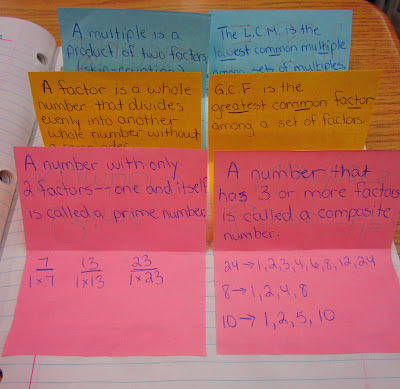 A multiple is a
product of two factors
(skip-counting)
The L.C.M. is the
lowest common multiple
among sets of multiples.
A factor is a whole
number that divides
evenly into another
whole number without
G.C.F. is the
greatest common factor
among a set of factors.
A number with only
2 factors--one and itself
is called a prime number.
7 13 23
1x7 1x13 1x23
A number that
has 3 or more factors
is called a composite
number.
24→1,2,3,4,6,8,12,24
8→1,2,4,8
10→1,2,5,10